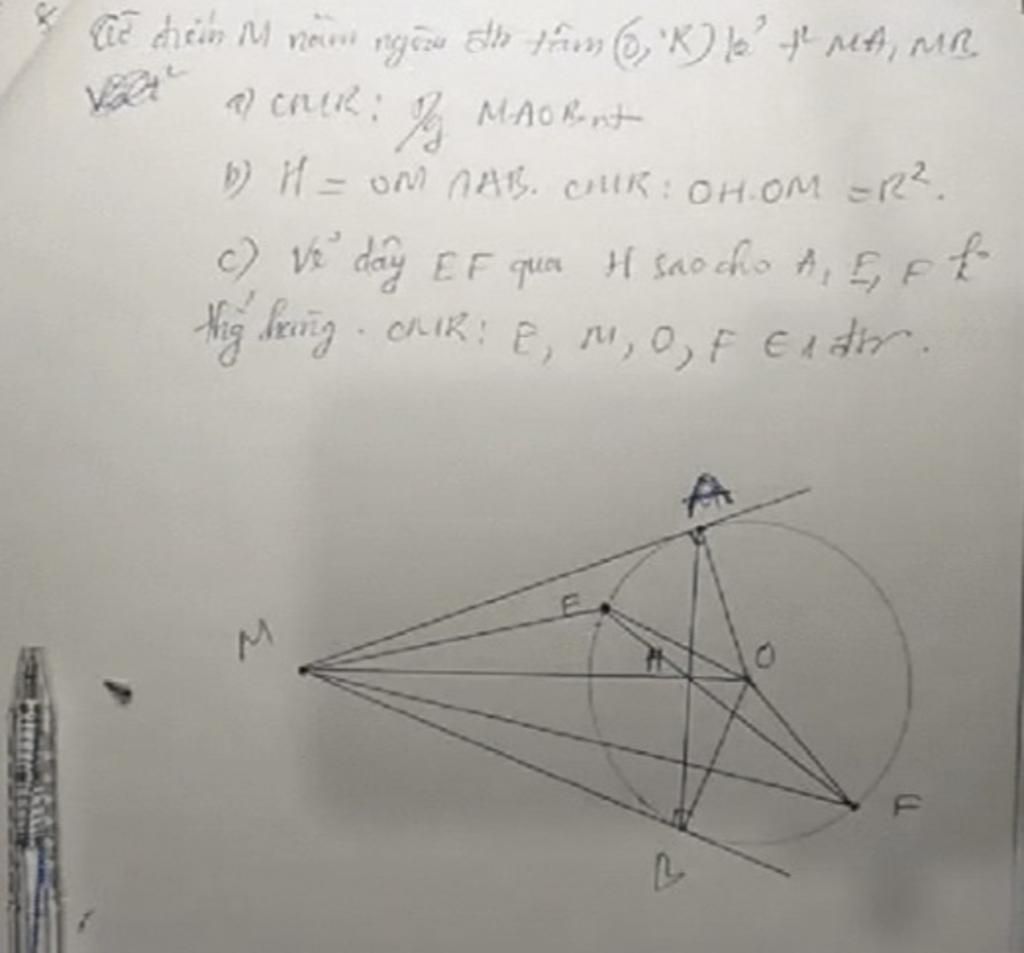 Từ điểm M nằm ngoài đtr tâm (O, R) kẻ t² MA, MB
a) CMR: t/g MAOB nt
b) H = OM ∩ AB. CMR: OH.OM = R².
c) Vẽ dây EF qua H sao cho A, E, F k
thẳng hàng. CMR: E, M, O, F ∈ 1 đtr.
A
E
M
H
O
F
B